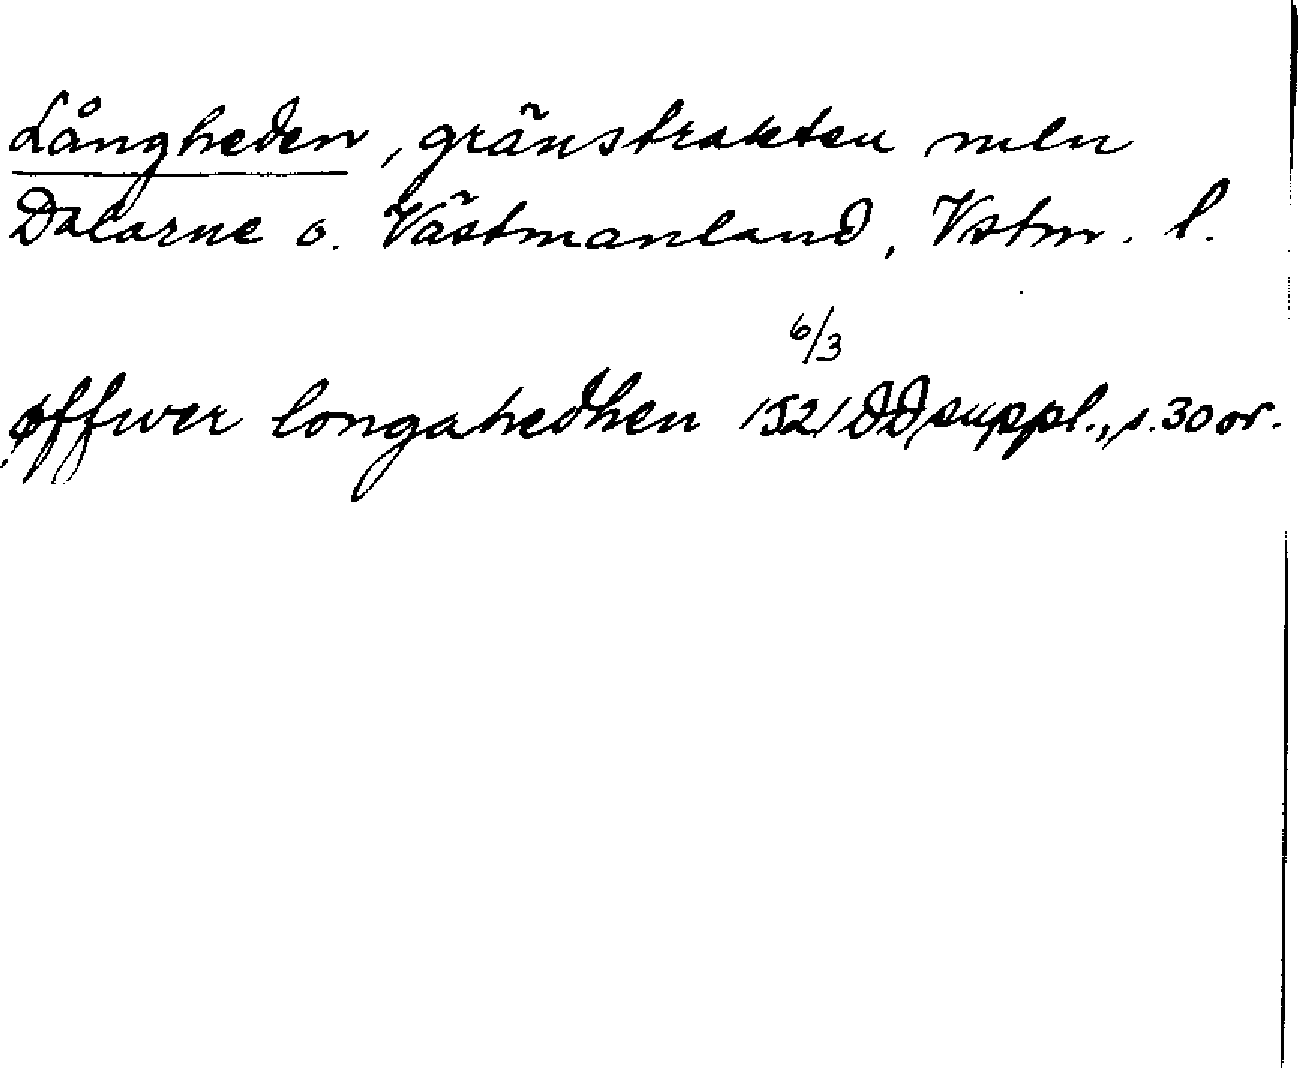 Långheden, gränstrakten mln
Dalarne o. Västmanland, Vstm. l.
6/3
øffwer longahedhen 1521 DD suppl., s. 30 or.